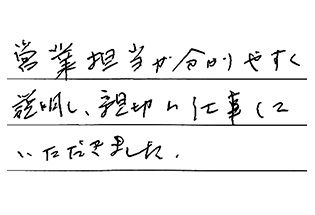 営業担当が分かりやすく
説明し、親切に仕事して
いただきました。